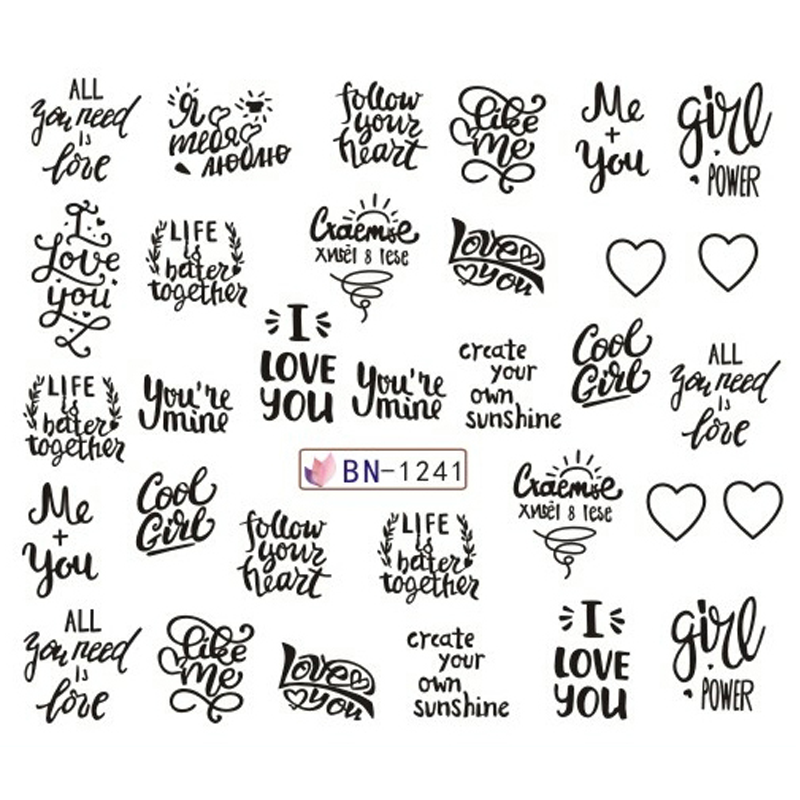 ALL
you need
is
love
Я
тебя
люблю
follow
your
heart
like
me
Me
+
You
girl
POWER
I
Love
you
LIFE
is
beter
together
Счаетье
живёт в тебе
Love
you
I
LOVE
YOU
Cool
Girl
LIFE
is
beter
together
You're
mine
You're
mine
create
your
own
sunshine
ALL
you need
is
love
BN-1241
Me
+
You
Cool
Girl
follow
your
heart
LIFE
is
beter
together
Счаетье
живёт в тебе
ALL
you need
is
love
like
me
Love
you
create
your
own
sunshine
I
LOVE
YOU
girl
POWER